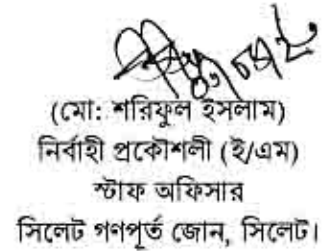 (মো: শরিফুল ইসলাম)
নির্বাহী প্রকৌশলী (ই/এম)
স্টাফ অফিসার
সিলেট গণপূর্ত জোন, সিলেট।